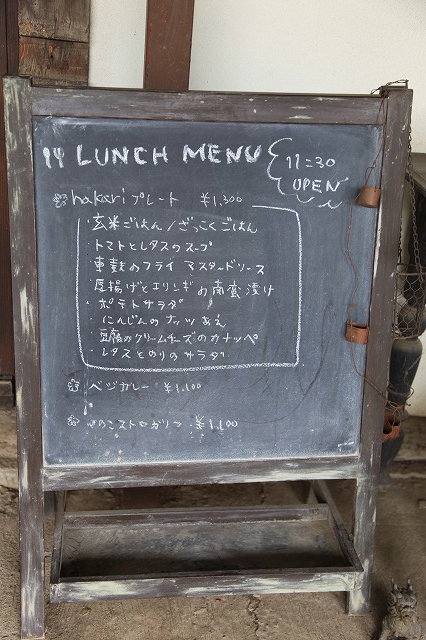 LUNCH MENU
11:30
OPEN
hakariプレート ¥1,300
・玄米ごはん/ざっこくごはん
・トマトとレタスのスープ
・車麩のフライ マスタードソース
・厚揚げとエリンギの南蛮漬け
・ポテトサラダ
・にんじんのナッツあえ
・豆腐のクリームチーズのカナッペ
・レタスとのりのサラダ
ベジカレー ¥1,100
きのこストロガノフ ¥1,100